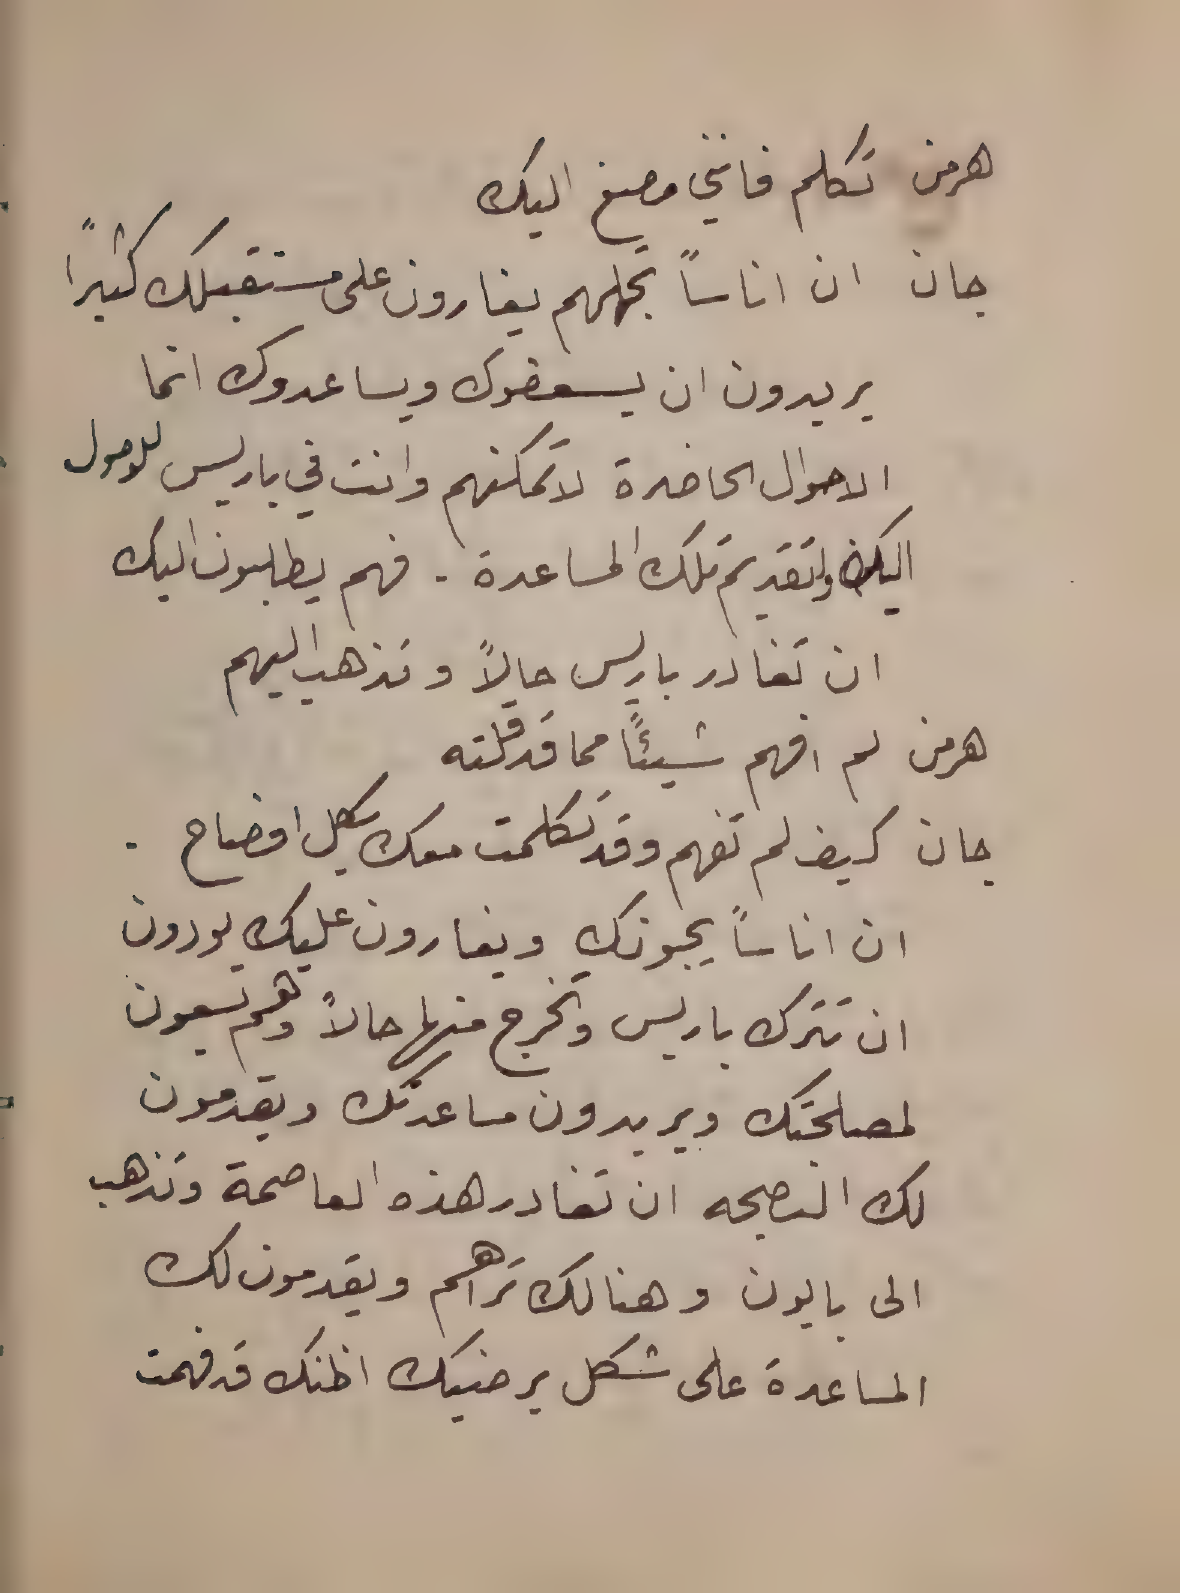 هرمن تكلم فانني مصغ اليك
جان ان اناساً تجهلهم يغارون على مستقبلك كثيراً
يريدون ان يسعفوك ويساعدوك انما
الاحوال الحاضرة لا تمكنهم وانت في باريس للوصول
اليك وتقديم تلك المساعدة . فهم يطلبون اليك
ان تغادر باريس حالاً وتذهب اليهم
هرمن لم افهم شيئًا مما قد قلته
جان كيف لم تفهم وقد تكلمت معك بكل افصاح .
ان اناساً يحبونك ويغارون عليك يودون
ان تترك باريس وتخرج منها حالاً وهم يسعون
لمصلحتك ويريدون مساعدتك ويقدمون
لك النصيحه ان تغادر هذه العاصمة وتذهب
الى بايون وهنالك تراهم ويقدمون لك
المساعدة على شكل يرضيك اظنك قد فهمت